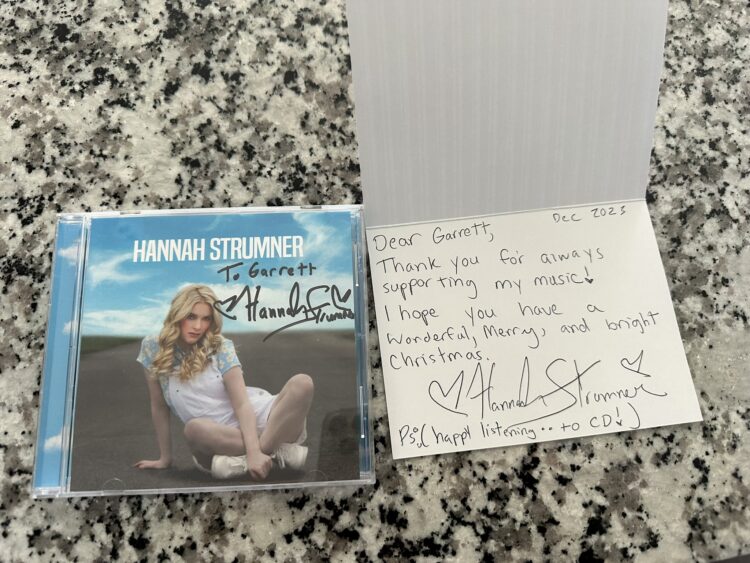 HANNAH STRUMNER
To Garrett
Hannah Strumner
Dec 2023
Dear Garrett,
Thank you for always
supporting my music!
I hope you have a
wonderful, Merry, and bright
Christmas.
Hannah Strumner
Ps:(happy listening.. to CD!)